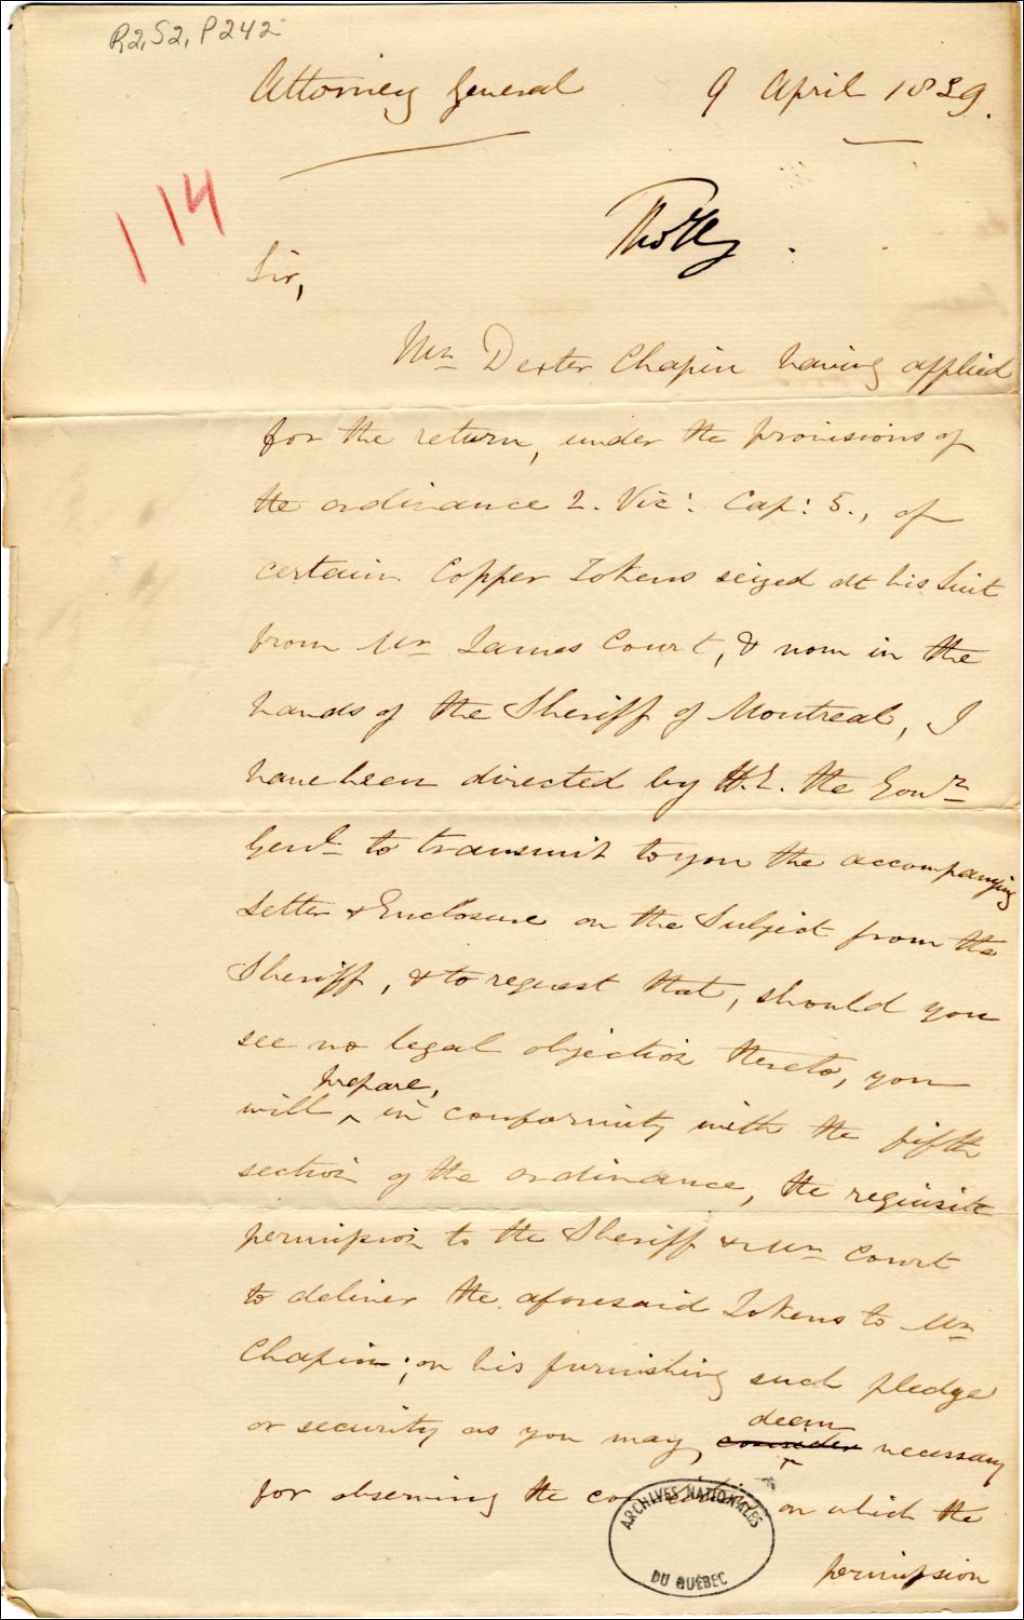 R2, S2, P242
Attorney General 9 April 1839.
114
Sir,
Mr Dexter Chapin having applied
for the return, under the provisions of
the ordinance 2. Vic: Cap: 5., of
certain Copper Tokens seized at his Suit
from Mr James Court, & now in the
hands of the Sheriff of Montreal, I
have been directed by H.E. the Govr
Genl to transmit to you the accompanying
Letter & Enclosure on the Subject from the
Sheriff, & to request that, should you
see no legal objection thereto, you
prepare,
will ^ in conformity with the fifth
section of the ordinance, the requisite
permission to the Sheriff & Mr Court
to deliver the aforesaid Tokens to Mr
Chapin; on his furnishing such pledge
deem
or security as you may, consider ^ necessary
for observing the conditions on which the
ARCHIVES NATIONALES
DU QUÉBEC
permission